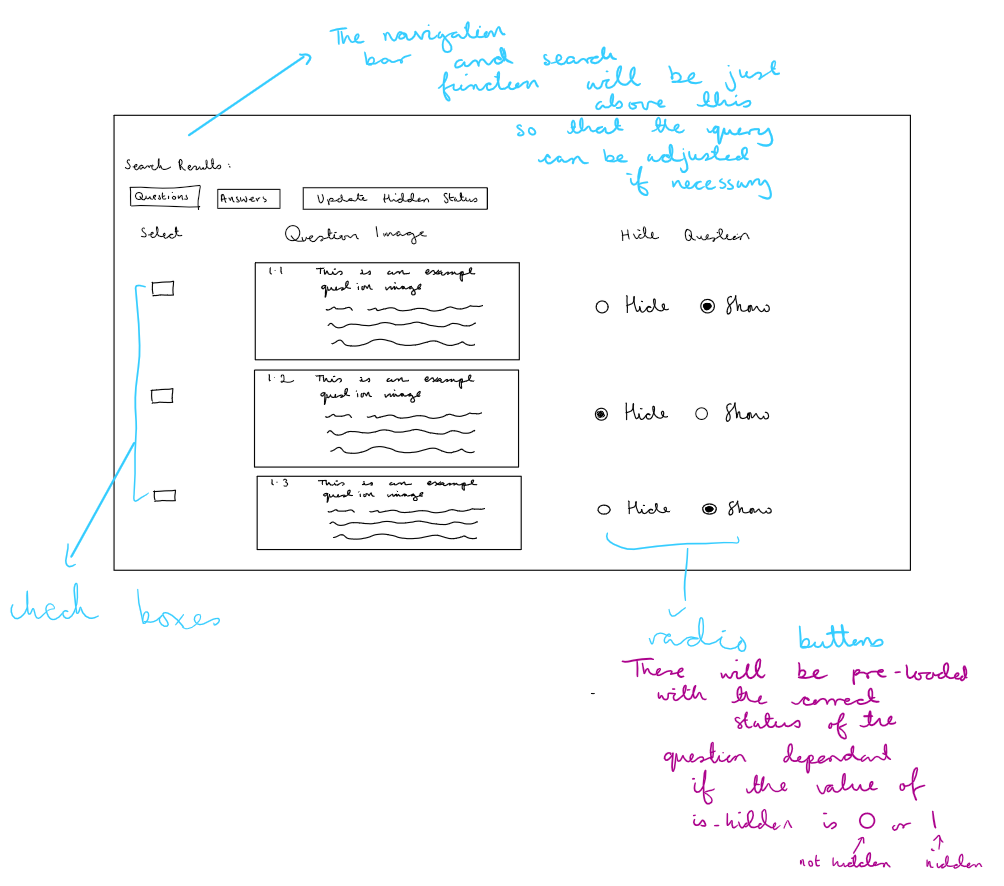 The navigation
bar and search
function will be just
above this
so that the query
can be adjusted
if necessary
Search Results:
Questions Answers Update Hidden Status
Select Question Image Hide Question
1.1 This is an example
question image
Hide Show
1.2 This is an example
question image
Hide Show
1.3 This is an example
question image
Hide Show
check boxes
radio buttons
These will be pre-loaded
with the correct
status of the
question dependant
if the value of
is-hidden is 0 or 1
not hidden hidden